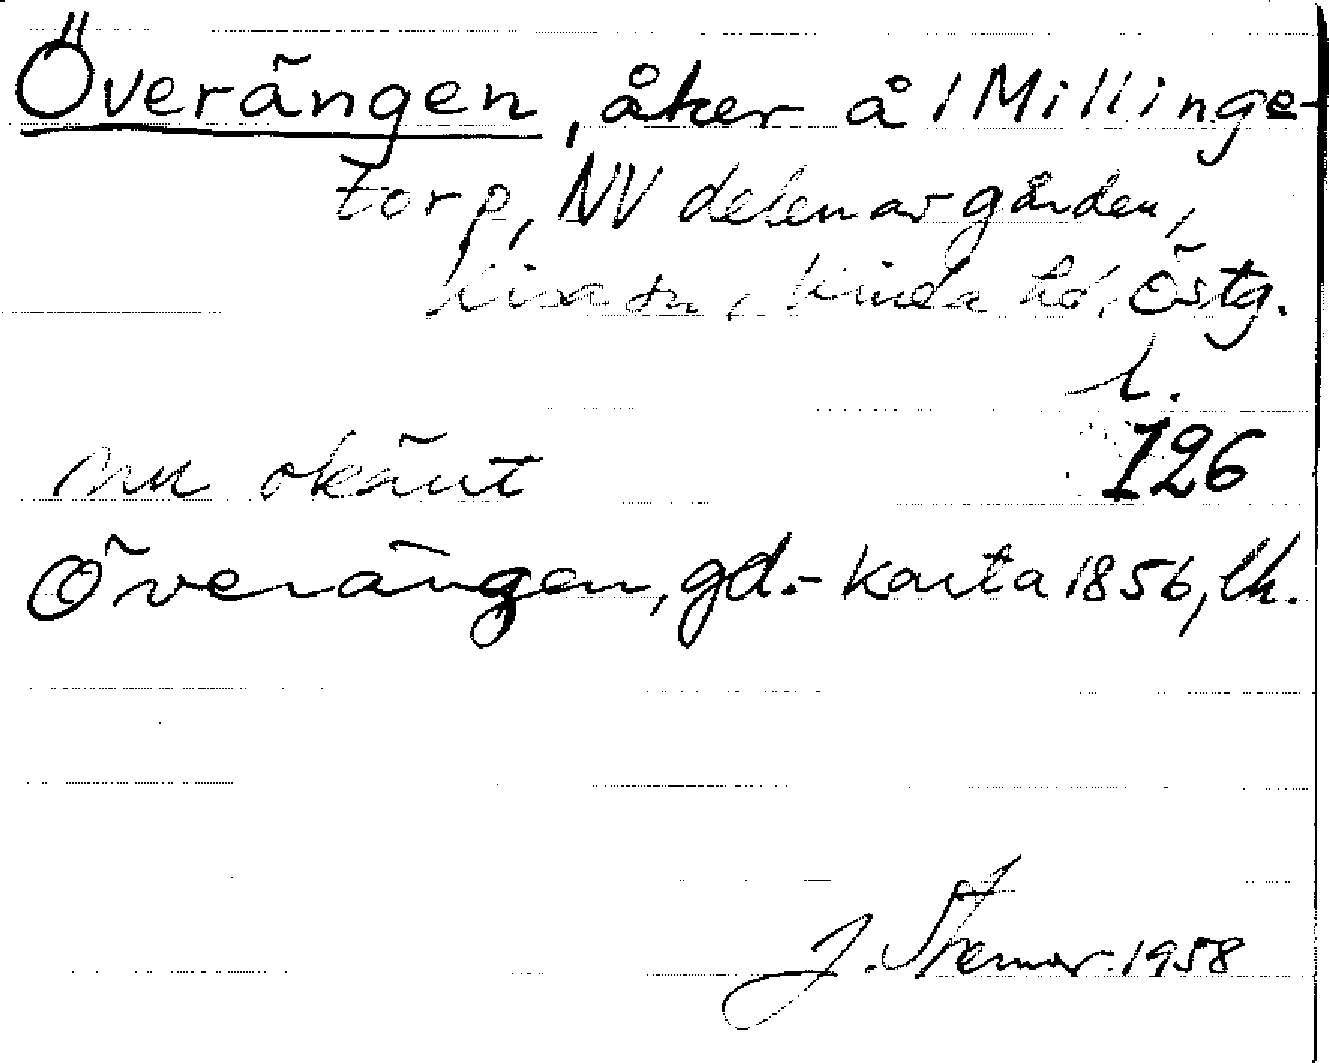 Överängen, åker å 1 Millinge-
torp, NV delen av gården,
Kisa sn, Kinda hd, Östg.
l.
126
nu okänt
Överängen, gd.- karta 1856, lh.
J. Stremar. 1958